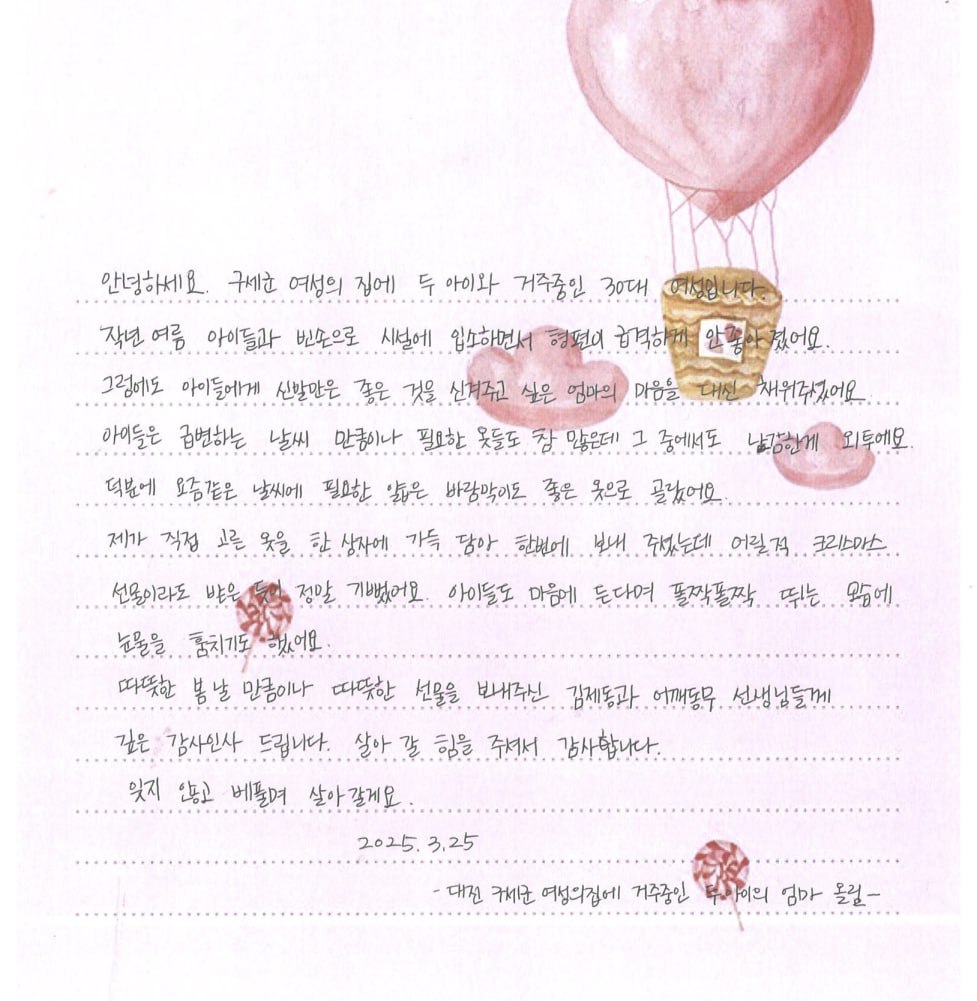 안녕하세요. 구세군 여성의 집에 두 아이와 거주중인 30대 여성입니다.
작년 여름 아이들과 빈손으로 시설에 입소하면서 형편이 급격하게 안좋아 졌어요.
그럼에도 아이들에게 신발만은 좋은 것을 신겨주고 싶은 엄마의 마음을 대신 채워주셨어요
아이들은 급변하는 날씨 만큼이나 필요한 옷들도 참 많은데 그 중에서도 난감한게 외투에요.
덕분에 요즘같은 날씨에 필요한 얇은 바람막이도 좋은 옷으로 골랐어요.
제가 직접 고른 옷을 한 상자에 가득 담아 한번에 보내 주셨는데 어릴적 크리스마스
선물이라도 받은 듯이 정말 기뻤어요. 아이들도 마음에 든다며 폴짝폴짝 뛰는 모습에
눈물을 훔치기도 했어요.
따뜻한 봄 날 만큼이나 따뜻한 선물을 보내주신 김제동과 어깨동무 선생님들께
깊은 감사인사 드립니다. 살아 갈 힘을 주셔서 감사합니다.
잊지 않고 베풀며 살아갈게요.
2025. 3. 25
- 대전 구세군 여성의집에 거주중인 두 아이의 엄마 올림 -